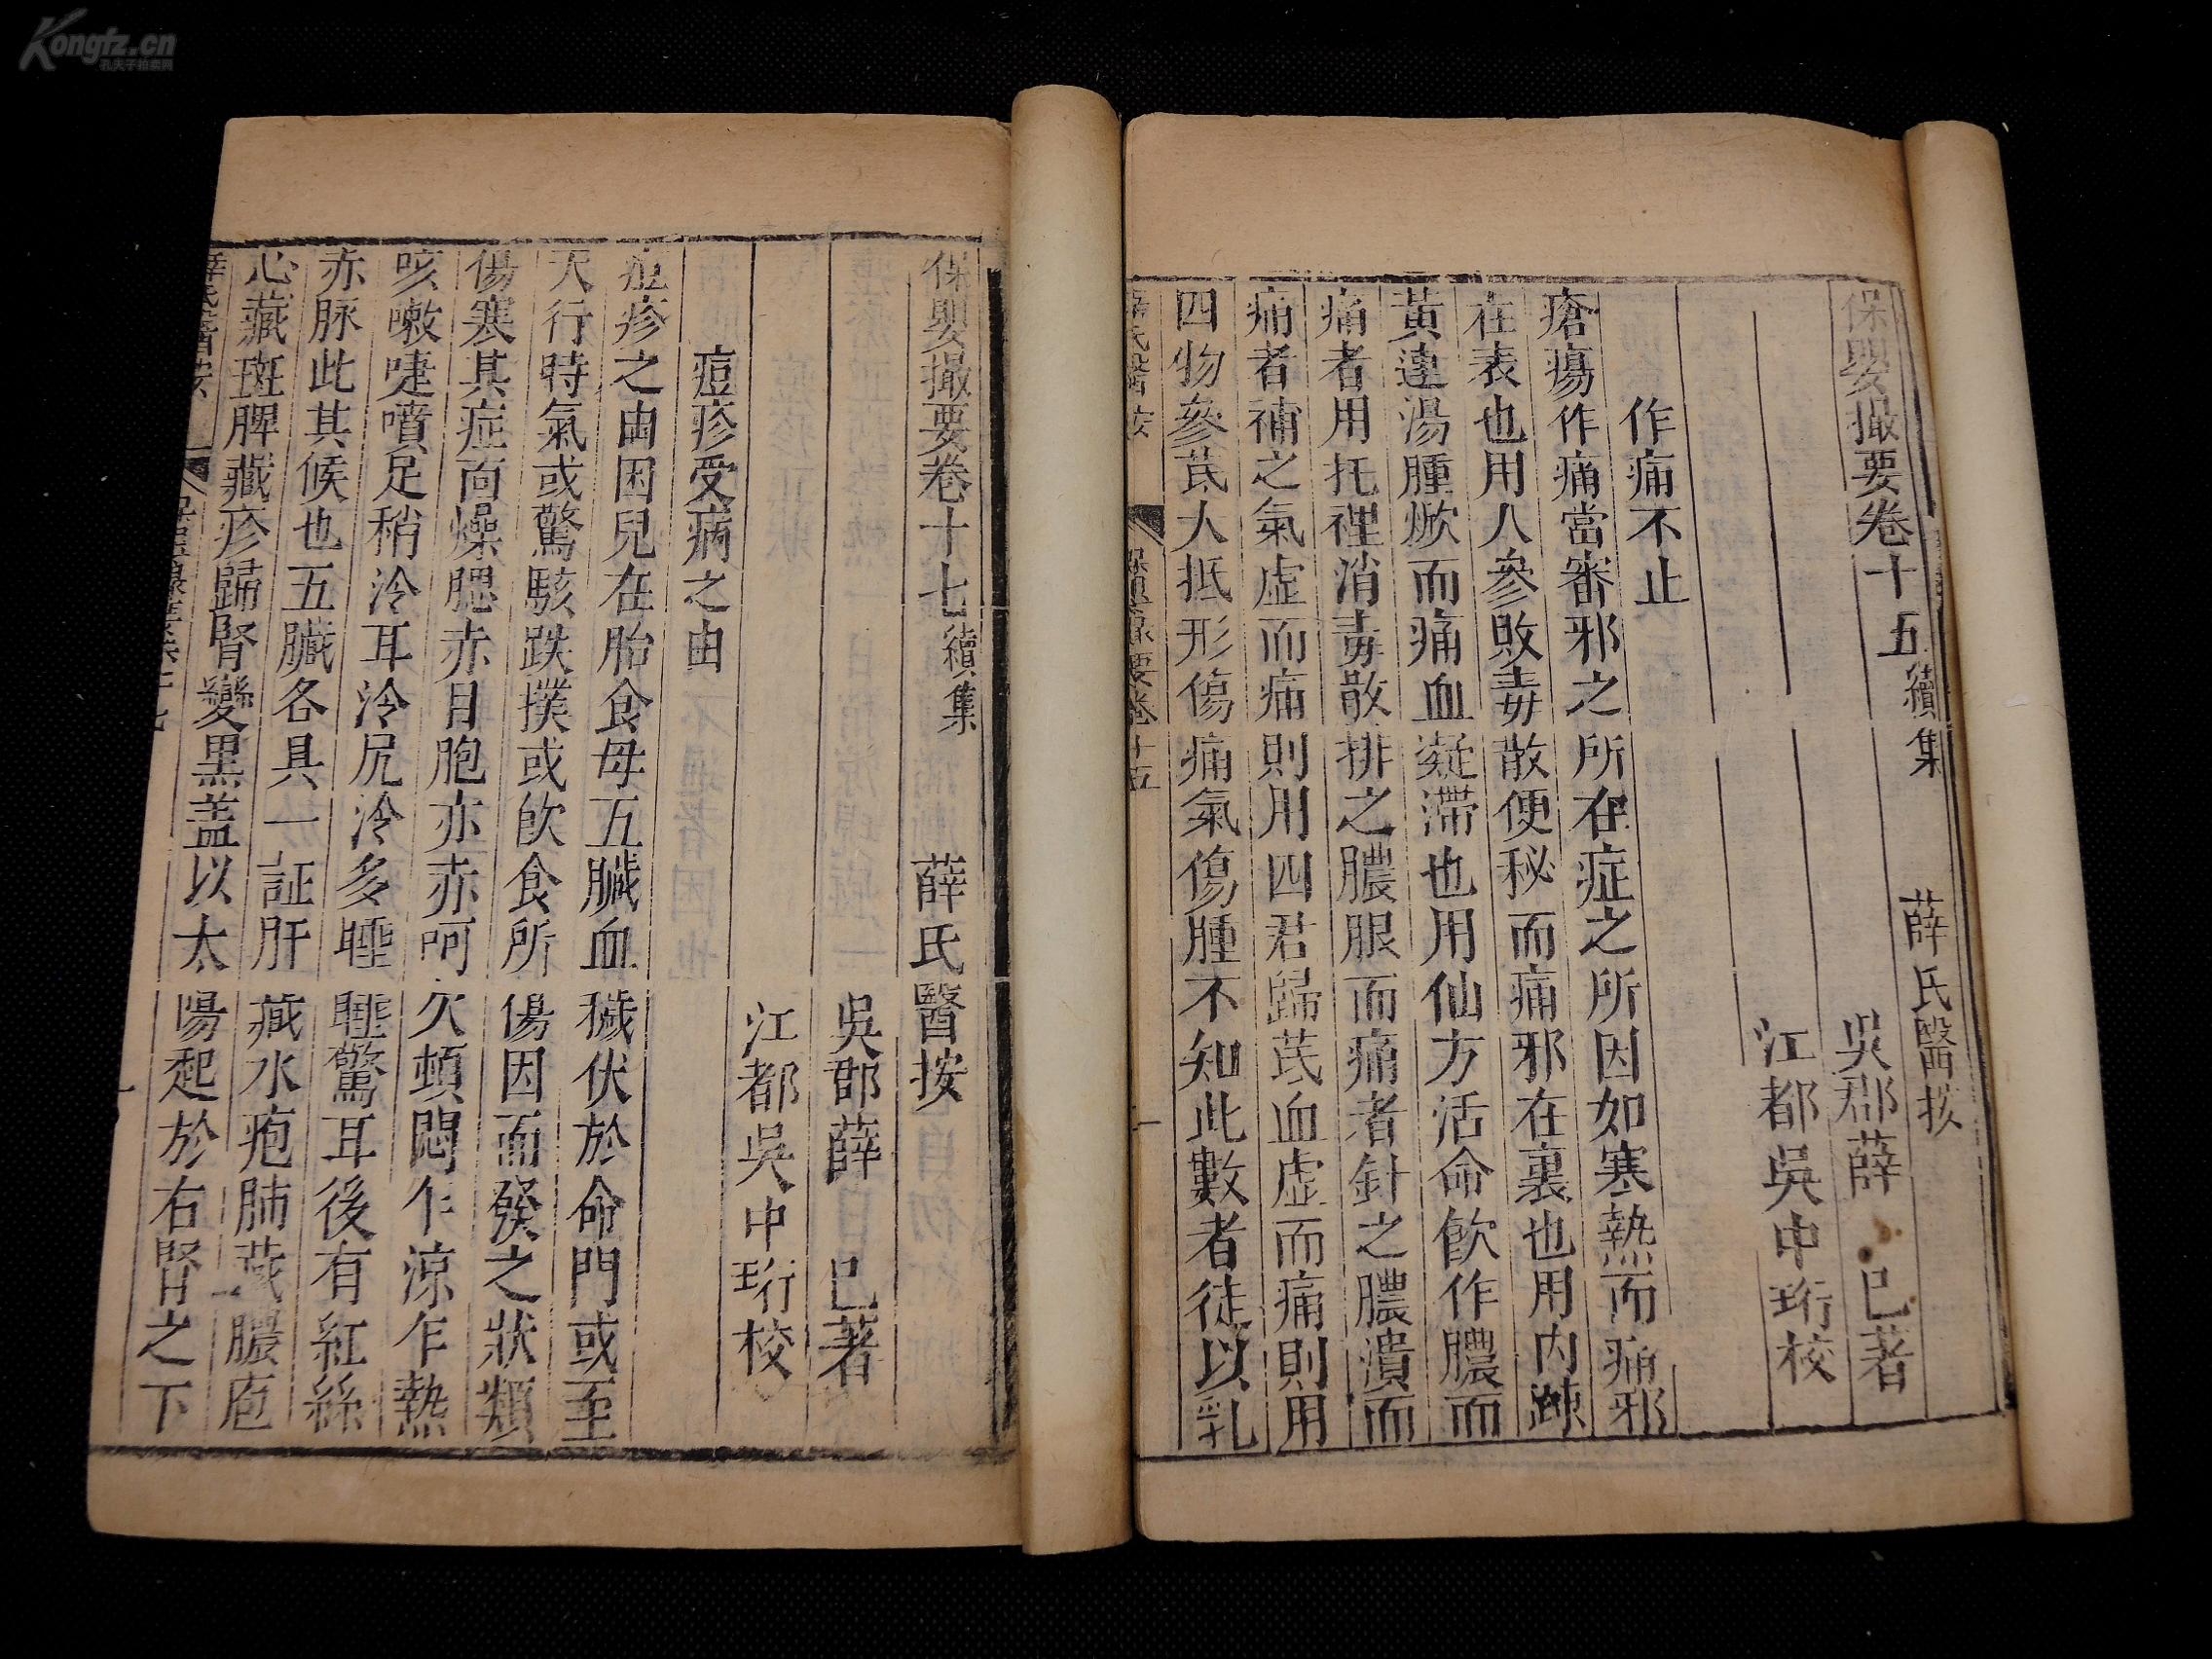 Kongfz.cn
孔夫子拍卖网
保嬰撮要卷十五續集
薛氏醫按
吳郡薛 已著
江都吳中珩校
作痛不止
瘡瘍作痛當審邪之所在症之所因如寒熱而痛邪
在表也用人參敗毒散便秘而痛邪在裏也用内疎
黃連湯腫焮而痛血凝滯也用仙方活命飲作膿而
痛者用托裡消毒散排之膿脹而痛者針之膿潰而
痛者補之氣虛而痛則用四君歸芪血虛而痛則用
四物參芪大抵形傷痛氣傷腫不知此數者徒以乳
薛氏醫按
保嬰撮要卷十五
一
保嬰撮要卷十七續集
薛氏醫按
吳郡薛 已著
江都吳中珩校
痘疹受病之由
痘疹之由因兒在胎食母五臟血穢伏於命門或至
天行時氣或驚駭跌撲或飲食所傷因而發之狀類
傷寒其症面燥腮赤目胞亦赤呵欠頓悶乍涼乍熱
咳嗽啑噴足稍冷耳冷尻冷多睡睡驚耳後有紅絲
赤脉此其候也五臟各具一証肝藏水疱肺藏膿疱
心藏斑脾藏疹歸腎變黑盖以太陽起於右腎之下
薛氏醫按
一